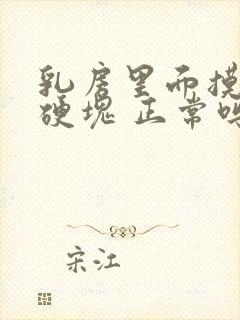 乳房里面摸
硬块 正常吗
宋江